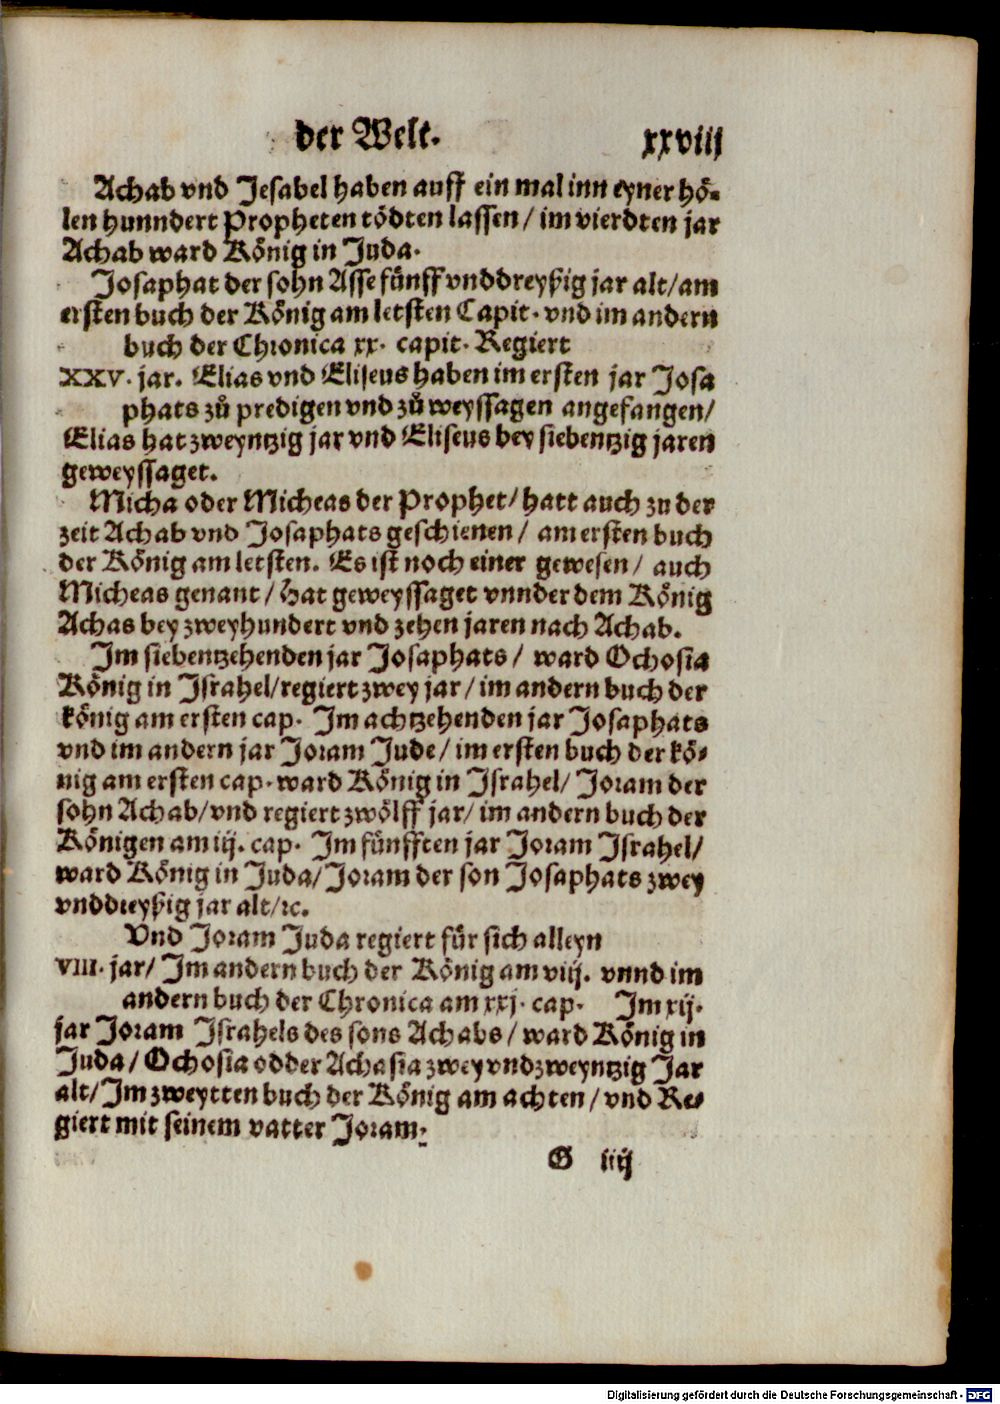 der Welt. xxviij
Achab vnd Jesabel haben auff ein mal inn eyner hö-
len hunndert Propheten tödten lassen / im vierdten jar
Achab ward König in Juda.
Josaphat der sohn Asse fünff vnddreyßig jar alt/am
ersten buch der König am letsten Capit. vnd im andern
buch der Chronica xx. capit. Regiert
XXV. jar. Elias vnd Eliseus haben im ersten jar Josa
phats zů predigen vnd zů weyssagen angefangen/
Elias hat zweyntzig jar vnd Eliseus bey siebentzig jaren
geweyssaget.
Micha oder Micheas der Prophet/hatt auch zu der
zeit Achab vnd Josaphats geschienen / am ersten buch
der König am letsten. Es ist noch einer gewesen / auch
Micheas genant / Hat geweyssaget vnnder dem König
Achas bey zweyhundert vnd zehen jaren nach Achab.
Im siebentzehenden jar Josaphats / ward Ochosia
König in Israhel/regiert zwey jar / im andern buch der
könig am ersten cap. Im achtzehenden jar Josaphats
vnd im andern jar Joram Jude / im ersten buch der kö-
nig am ersten cap. ward König in Israhel/ Joram der
sohn Achab/vnd regiert zwölff jar/ im andern buch der
Königen am iij. cap. Im fünfften jar Joram Israhel/
ward König in Juda/Joram der son Josaphats zwey
vnddreyßig jar alt/ꝛc.
Vnd Joram Juda regiert für sich alleyn
VIII. jar/ Im andern buch der König am viij. vnnd im
andern buch der Chronica am xxj. cap. Im xij.
jar Joram Israhels des sons Achabs / ward König in
Juda / Ochosia odder Achasia zwey vndzweyntzig Jar
alt/ Im zweytten buch der König am achten / vnd Re-
giert mit seinem vatter Joram.
G iiij
Digitalisierung gefördert durch die Deutsche Forschungsgemeinschaft - DFG